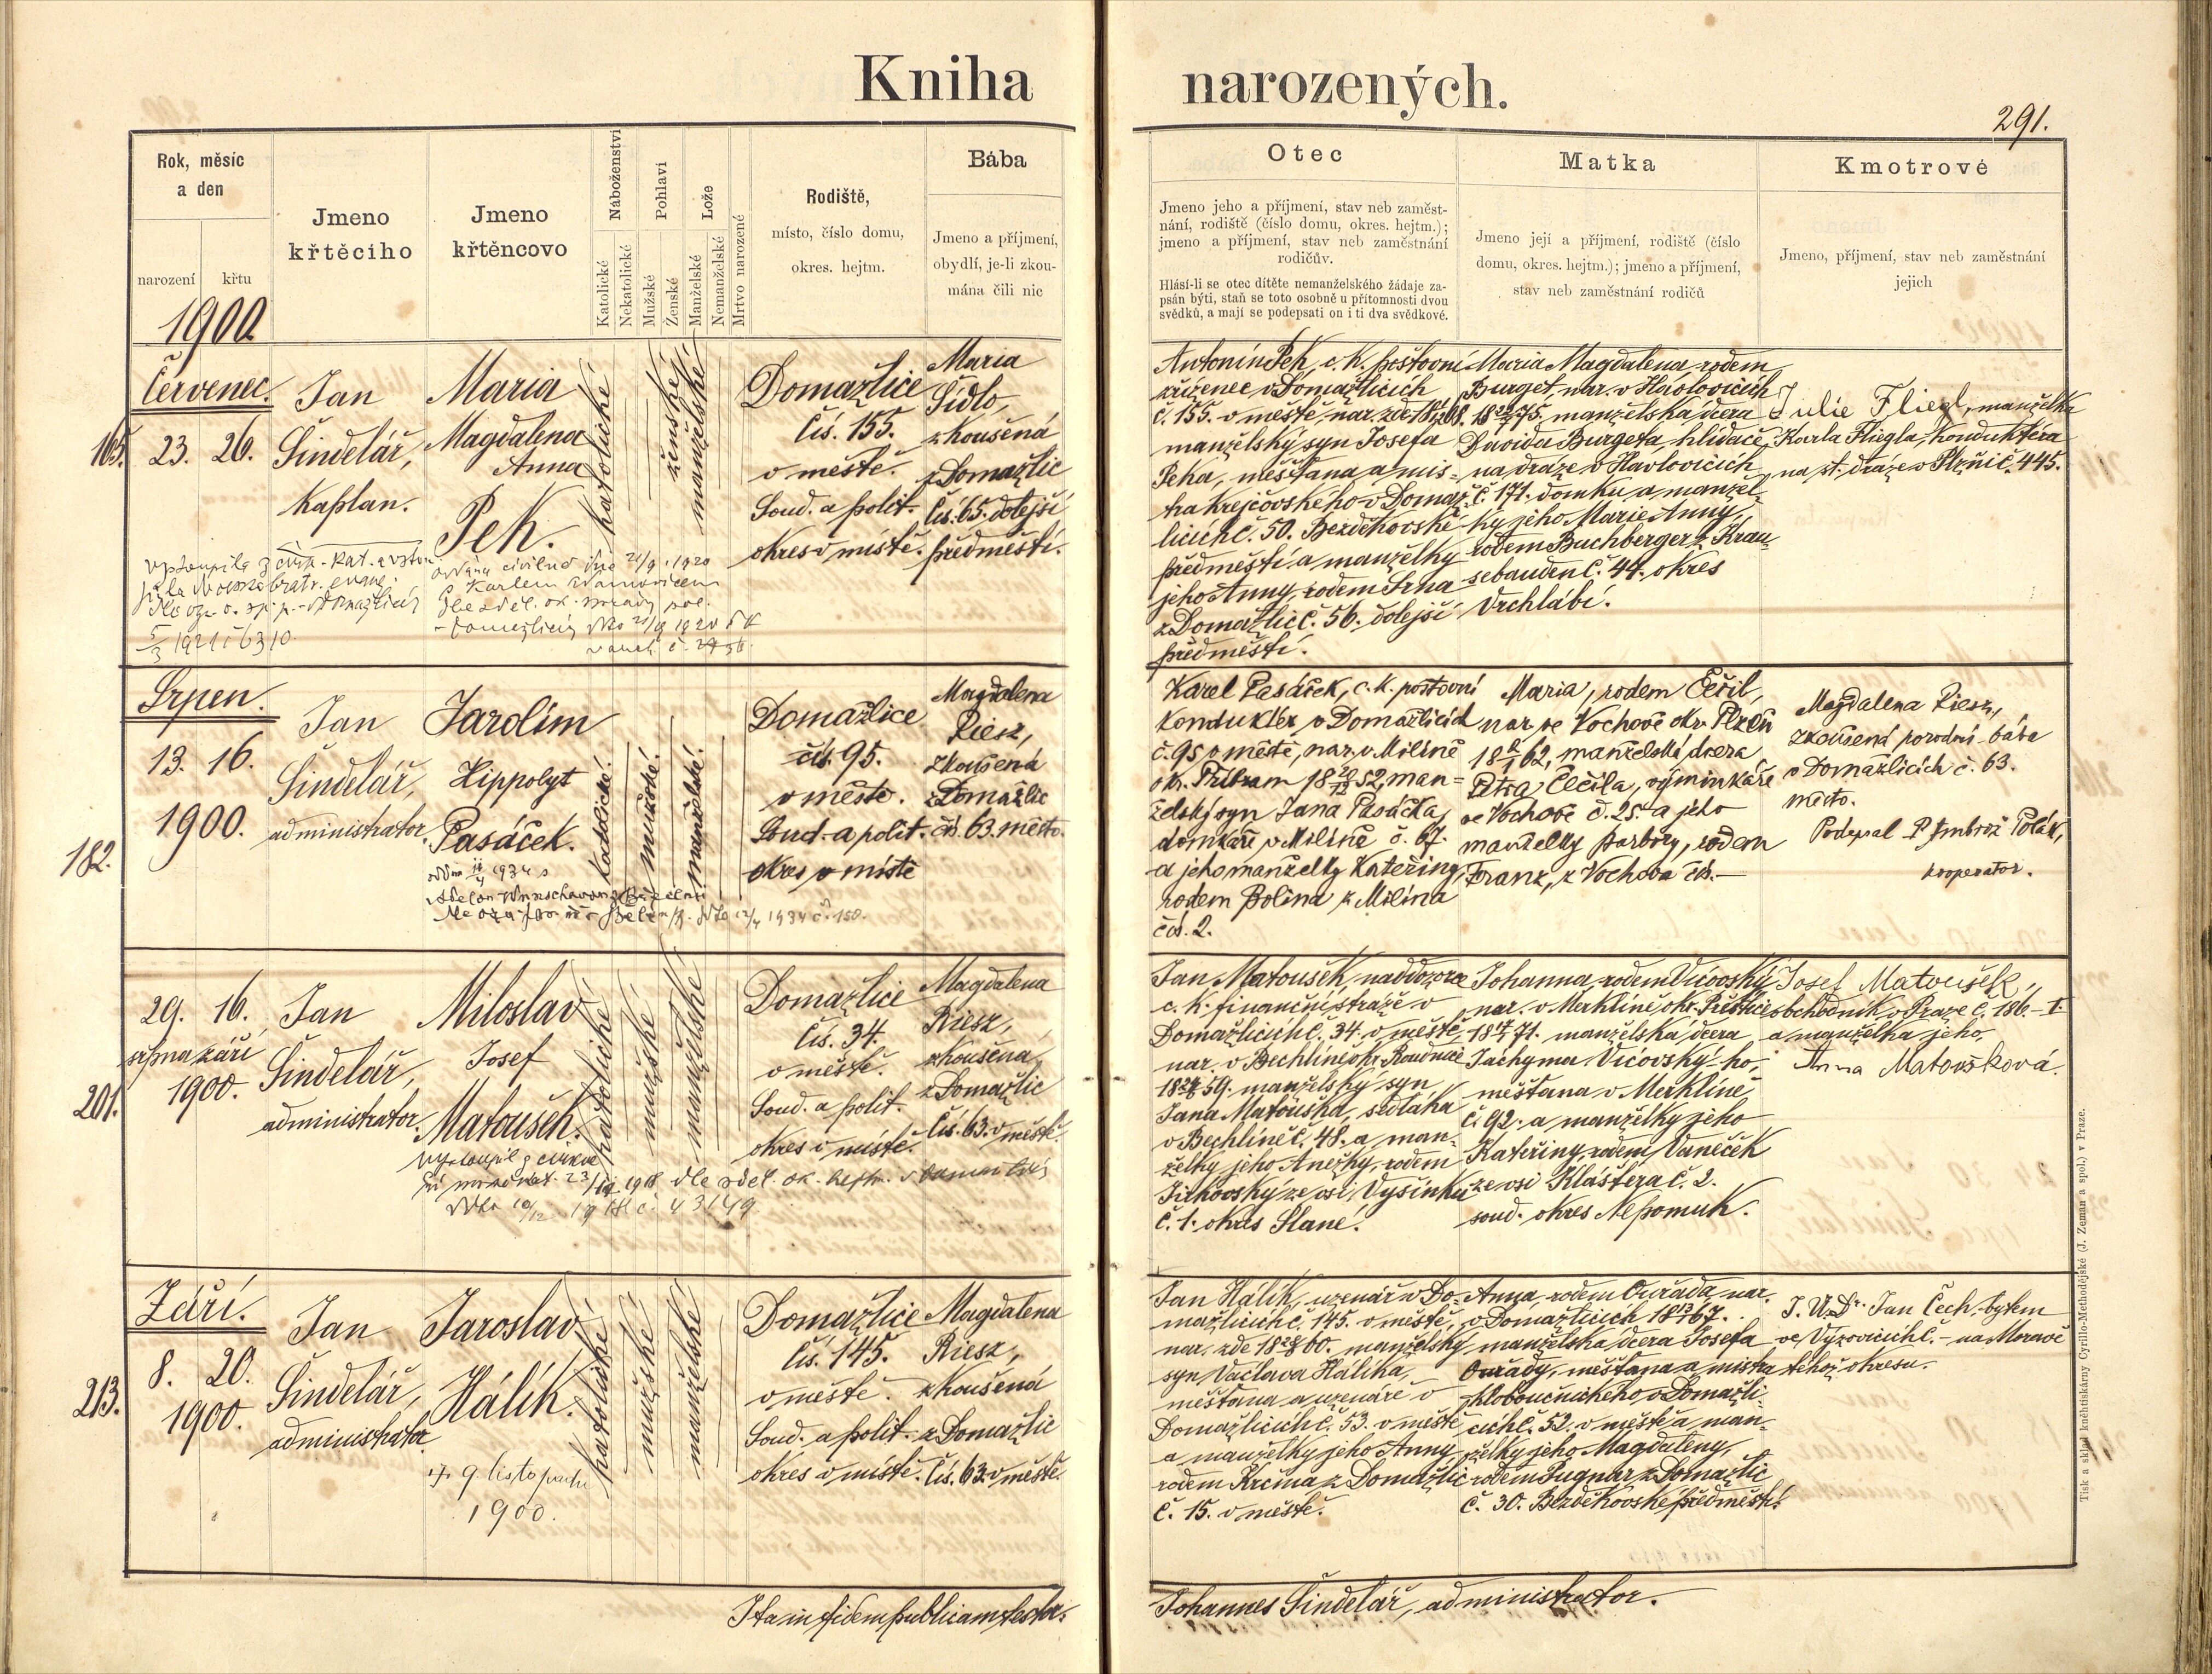 Kniha narozených.
291.
Rok, měsíc
a den
narození
křtu
Jmeno
křtěcího
Jmeno
křtěncovo
Náboženství
Katolické
Nekatolické
Pohlaví
Mužské
Ženské
Lože
Manželské
Nemanželské
Mrtvo narozené
Rodiště,
místo, číslo domu,
okres. hejtm.
Bába
Jmeno a příjmení,
obydlí, je-li zkou-
mána čili nic
Otec
Jmeno jeho a příjmení, stav neb zaměst-
nání, rodiště (číslo domu, okres. hejtm.);
jmeno a příjmení, stav neb zaměstnání
rodičův.
Hlásí-li se otec dítěte nemanželského žádaje za-
psán býti, staň se toto osobně u přítomnosti dvou
svědků, a mají se podepsati on i ti dva svědkové.
Matka
Jmeno její a příjmení, rodiště (číslo
domu, okres. hejtm.); jmeno a příjmení,
stav neb zaměstnání rodičů
Kmotrové
Jmeno, příjmení, stav neb zaměstnání
jejich
1900
Červenec.
165.
23. 26.
Jan
Šindelář,
kaplan.
Maria
Magdalena
Anna
Pek.
katolické
ženské
manželské
Domažlice
čís. 155.
v městě.
Soud. a polit.
okres v místě.
Maria
Sídlo,
zkoušená
z Domažlic
čís. 65. dolejší
předměstí.
Antonín Pek, c. k. poštovní
zřízenec v Domažlicích
č. 155. v městě, nar. zde
manželský syn Josefa
Peka, měšťana a mis-
tra krejčovského v Domaž-
licích č. 50. Bezděkovské
předměstí a manželky
jeho Anny, rodem Srna
z Domažlic č. 56. dolejší
předměstí.
Maria Magdalena rodem
Burget, nar. v Havlovicích
manželská dcera
Davida Burgeta, hlídače
na dráze v Havlovicích
č. 171. domku a manžel-
ky jeho Marie Anny,
rodem Buchberger z Krau-
sebauden č. 44. okres
Vrchlabí.
Julie Fliegl, manželka
Karla Fliegla, konduktéra
na st. dráze v Plzni č. 445.
oddána civilně dne 21/9. 1920
s Karlem
5/3 1921 č 6310.
Srpen.
182.
13. 16.
1900.
Jan
Šindelář,
administrator.
Jarolím
Hippolyt
Pasáček.
katolické.
mužské.
manželské.
Domažlice
čís. 95.
v městě.
Soud. a polit.
okres v místě
Magdalena
Riesz,
zkoušená
z Domažlic
čís. 63. město.
Karel Pasáček, c. k. poštovní
kondukter v Domažlicích
č. 95 v městě, nar. v Milíně
okr. Příbram 18 28/12 52, man-
želský syn Jana Pasáčka,
domkáře v Milíně č. 67.
a jeho manželky Kateřiny,
rodem Bolina z Milína
čís. 2.
Maria, rodem Čečil,
nar. ve Vochově okr. Plzeň
manželská dcera
Petra Čečila, výminkáře
ve Vochově č. 25. a jeho
manželky Barbory, rodem
Franz, z Vochova čís. —
Magdalena Riesz,
zkoušená porodní bába
v Domažlicích č. 63.
město.
Podepsal P. Ambrož Polák,
kooperator.
201.
29. 16.
srpna září
1900.
Jan
Šindelář,
administrator.
Miloslav
Josef
Matoušek.
katolické
mužské
manželské
Domažlice
čís. 34.
v městě.
Soud. a polit.
okres v místě.
Magdalena
Riesz,
zkoušená
z Domažlic
čís. 63. v městě.
Jan Matoušek, naddozorce
c. k. finanční stráže v
Domažlicích č. 34. v městě,
nar. v Bechlíně okr. Roudnice
manželský syn
Jana Matouška, sedláka
v Bechlíně č. 48. a man-
želky jeho Anežky, rodem
Jirkovský ze vsi Vyšínku
č. 1. okres Slané.
Johanna, rodem Vícovský
nar. v Merklíně okr. Přeštice
manželská dcera
Jáchyma Vícovský-ho,
měšťana v Merklíně
č. 92. a manželky jeho
Kateřiny, rodem Vaněček
ze vsi Kláštera č. 2.
soud. okres Nepomuk.
Josef Matoušek,
obchodník v Praze č. 186.-I.
a manželka jeho,
Anna Matoušková.
vystoupil z církve
23/IX 1918 dle sděl. ok. hejtm. v Domažlicích
Září.
213.
8. 20.
1900.
Jan
Šindelář,
administrator.
Jaroslav
Hálík.
katolické
mužské
manželské
Domažlice
čís. 145.
v městě.
Soud. a polit.
okres v místě.
Magdalena
Riesz,
zkoušená
z Domažlic
čís. 63. v městě
Jan Hálík, uzenář v Do-
mažlicích č. 145. v městě,
nar. zde manželský
syn Václava Hálíka,
měšťana a uzenáře v
Domažlicích č. 53. v městě
a manželky jeho Anny,
rodem Krčma z Domažlic
č. 15. v městě.
Anna, rodem Ouřada, nar.
v Domažlicích
manželská dcera Josefa
Ouřady, měšťana a mistra
kloboučnického v Domažli-
cích č. 52. v městě a man-
želky jeho Magdaleny,
rodem Pugnar z Domažlic
č. 30. Bezděkovské předměstí.
J. U. Dr. Jan Čech, bytem
ve Vyzovicích č. – na Moravě
téhož okresu.
† 9. listopadu
1900.
Ita in fidem publicam testor:
Johannes Šindelář, administrator.
Tisk a sklad knihtiskárny Cyrillo-Methodějské (J. Zeman a spol.) v Praze.